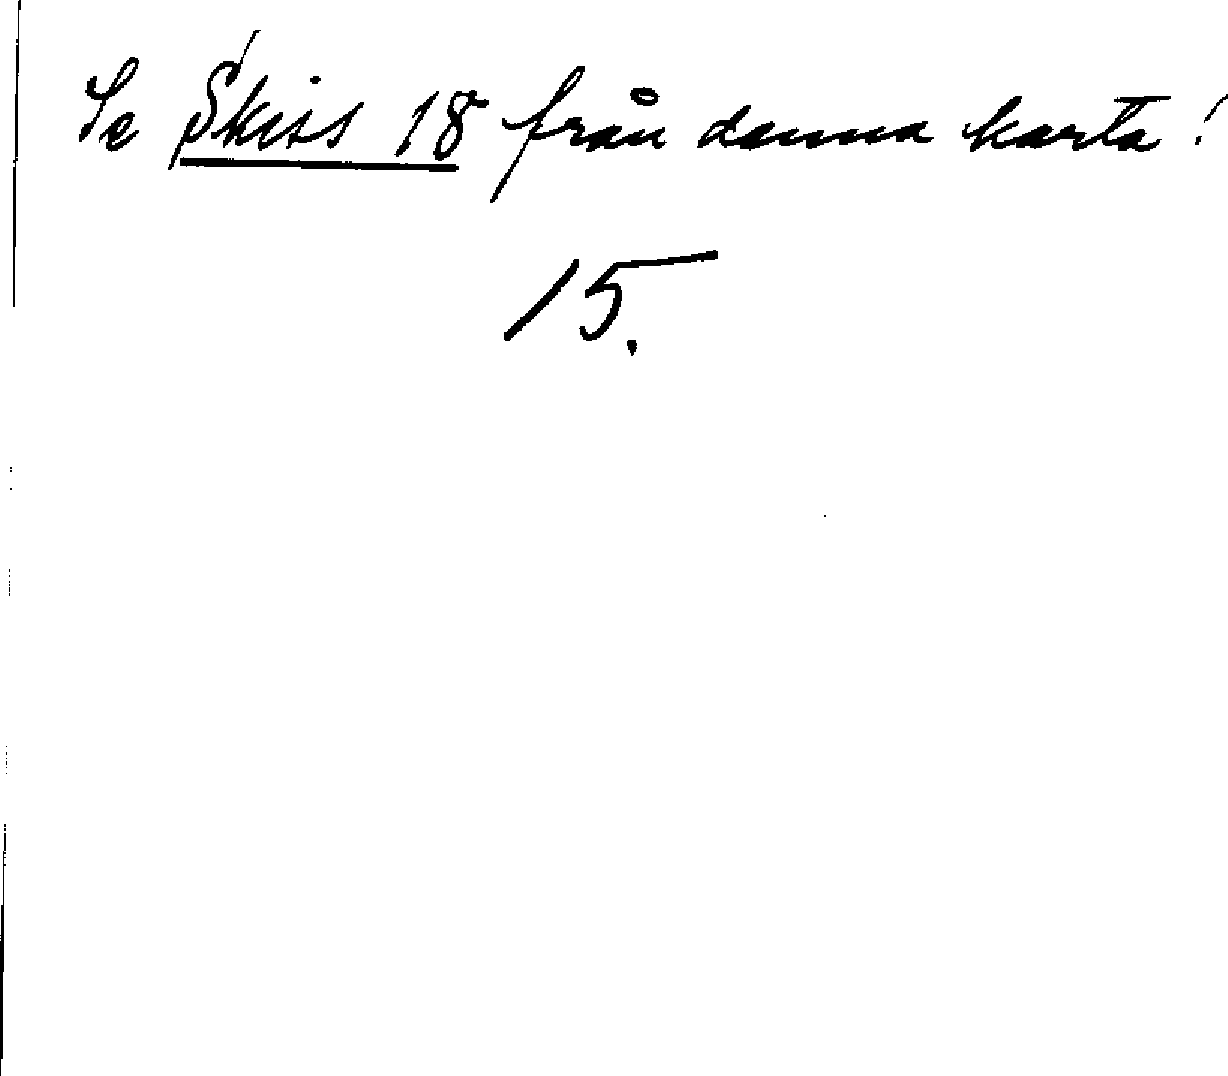 Se Skiss 18 från denna karta!
15.